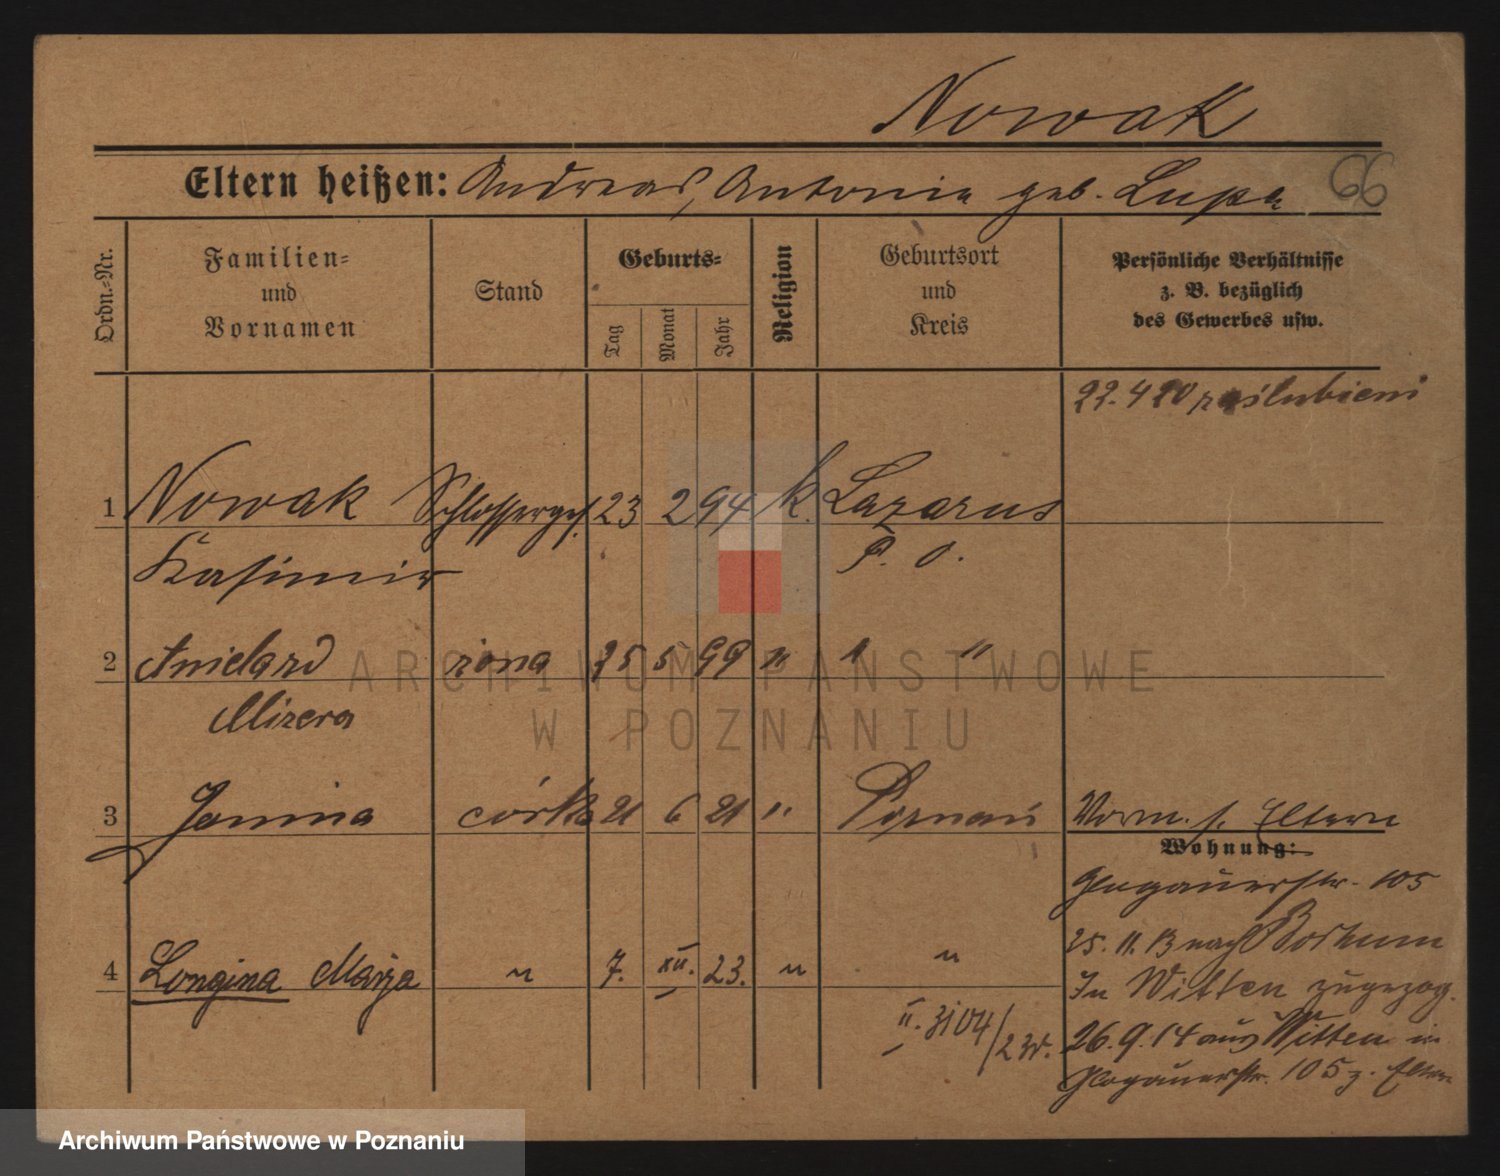 Nowak
Eltern heißen: Andreas, Antonie geb. Lupa
66
Ordn.-Nr.
Familien-
und
Vornamen
Stand
Geburts-
Tag
Monat
Jahr
Religion
Geburtsort
und
Kreis
Persönliche Verhältnisse
z. B. bezüglich
des Gewerbes usw.
22.4 20 poślubieni
1 Nowak Schlosserges. 23 2 94 k. Lazarus
Kasimir P. O.
2 żona 25 5 99 " " "
Mizera
3 Janina córka 21 6 21 " Poznań Vorm. s. Eltern
Wohnung:
Glogauerstr. 105
25. 11. 13 nach Bochum
4 Longina Marja " 7. XII. 23. " "
In Witten zugezog.
II. 3104/23r.
26.9.14 aus Witten in
Glogauerstr. 105 z. Eltern
ARCHIWUM PAŃSTWOWE
W POZNANIU
Archiwum Państwowe w Poznaniu